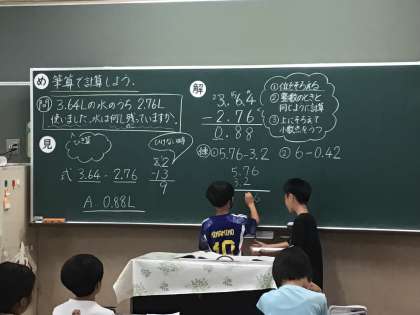 め 筆算で計算しよう。
問 3.64Lの水のうち 2.76L
使いました。水は何L残っていますか。
見
ひき算
ひけない時
22
-13
9
式 3.64 - 2.76
A. 0.88L
解
3.64
-2.76
0.88
①位をそろえる
②整数のときと
同じように計算
③上にそろえて
小数点をうつ
練 ①5.76-3.2 ②6-0.42
5.76
3.2
10